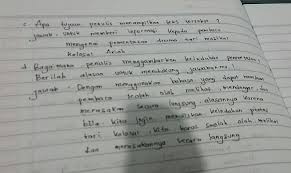 c. Apa tujuan penulis menampilkan teks tersebut ?
jawab : untuk memberi informasi kepada pembaca
mengenai pementasan drama musikal
kolosal Ariah
d. Bagaimana penulis menggambarkan keindahan pementasan ?
Berilah alasan untuk mendukung jawabanmu !
jawab : Dengan menggunakan bahasa yang dapat membuat
pembaca seolah olah melihat, mendengar, dan
merasakan secara langsung. alasannya karena
bila kita ingin menuliskan keindahan pentas
tari kolosal, kita harus seolah olah melihat
dan merasakannya secara langsung